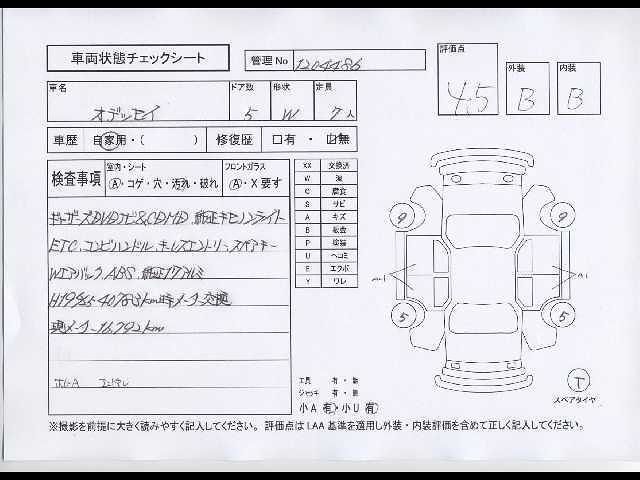 車両状態チェックシート
管理No 1204486
評価点 4.5
外装 B
内装 B
車名 オデッセイ
ドア数 5
形状 W
定員 7人
車歴 自家用・( )
修復歴 □有・☑無
検査事項
室内・シート
Ⓐ・コゲ・穴・汚れ・破れ
フロントガラス
Ⓐ・X要す
ギャザーズDVDナビ&CD,MD、純正キセノンライト
ETC、コンビハンドル、キーレスエントリー、スペアキー
Wエアバッグ、ABS、純正アルミ
現メーター16,792km
XX 交換済
W 波
C 腐食
S サビ
A キズ
B 板金
P 塗装
U ヘコミ
E エクボ
Y ワレ
9
9
A-1
A-1
5
5
T
スペアタイヤ
工具 有・無
ジャッキ 有・無
小A 有・小U 有
※撮影を前提に大きく読みやすく記入してください。 評価点はLAA基準を適用し外装・内装評価を含めて正しく記入してください。